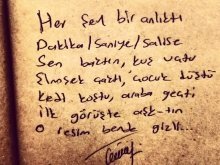 Her şey bir anlıktı
Dakika/Saniye/Salise
Sen baktın, kuş uçtu
Elmaşek aktı, çocuk düştü
Kedi koştu, araba geçti
İlk görüşte aşk-tın
O resim bende gizli...